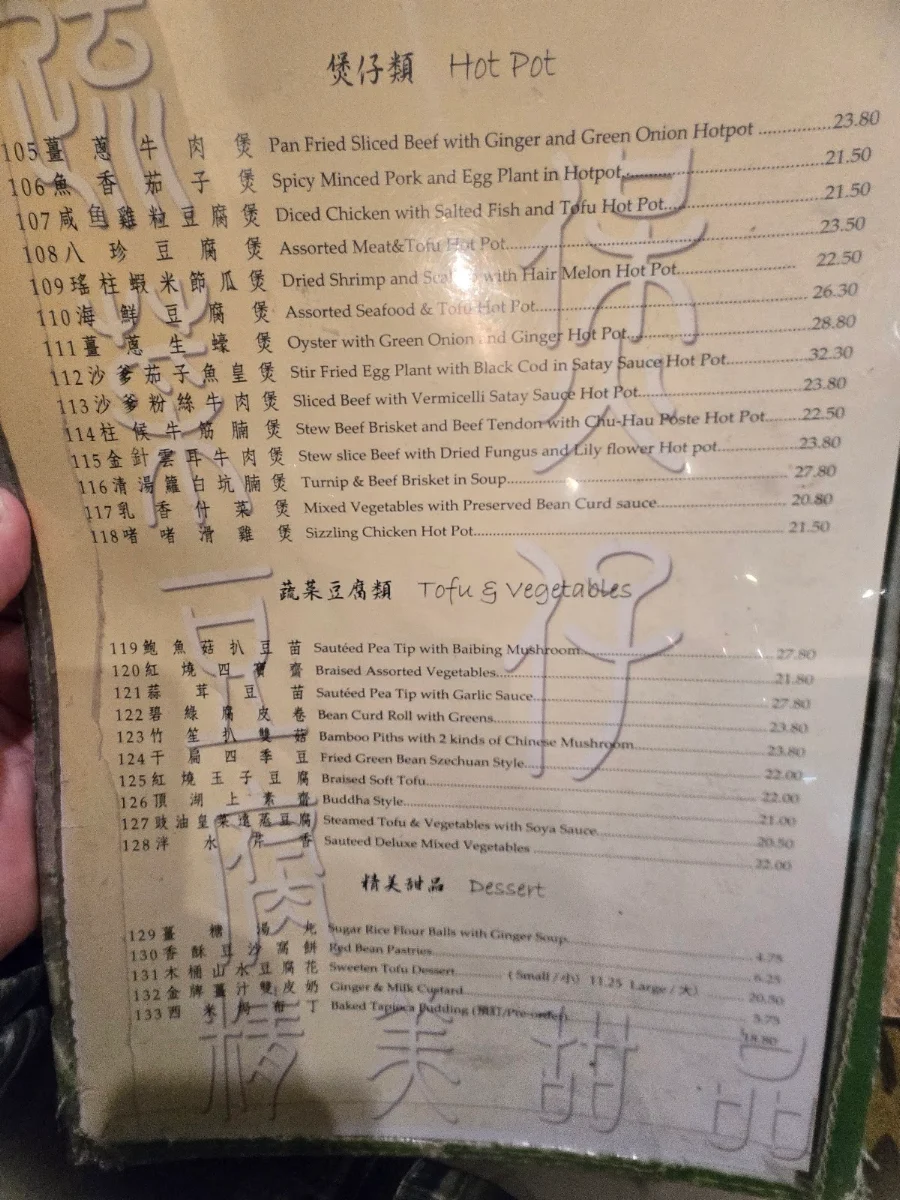 煲仔類 Hot Pot
105 薑蔥牛肉煲 Pan Fried Sliced Beef with Ginger and Green Onion Hotpot 23.80
106 魚香茄子煲 Spicy Minced Pork and Egg Plant in Hotpot 21.50
107 咸鱼雞粒豆腐煲 Diced Chicken with Salted Fish and Tofu Hot Pot 21.50
108 八珍豆腐煲 Assorted Meat&Tofu Hot Pot 23.50
109 瑤柱蝦米節瓜煲 Dried Shrimp and with Hair Melon Hot Pot 22.50
110 海鮮豆腐煲 Assorted Seafood & Tofu Hot Pot 26.30
111 薑蔥生蠔煲 Oyster with Green Onion and Ginger Hot Pot 28.80
112 沙爹茄子魚皇煲 Stir Fried Egg Plant with Black Cod in Satay Sauce Hot Pot 32.30
113 沙爹粉絲牛肉煲 Sliced Beef with Vermicelli Satay Sauce Hot Pot 23.80
114 柱候牛筋腩煲 Stew Beef Brisket and Beef Tendon with Chu-Hau Poste Hot Pot 22.50
115 金針雲耳牛肉煲 Stew slice Beef with Dried Fungus and Lily flower Hot pot 23.80
116 清湯蘿白坑腩煲 Turnip & Beef Brisket in Soup 27.80
117 乳香什菜煲 Mixed Vegetables with Preserved Bean Curd sauce 20.80
118 啫啫滑雞煲 Sizzling Chicken Hot Pot 21.50
蔬菜豆腐類 Tofu & Vegetables
119 鮑魚菇扒豆苗 Sautéed Pea Tip with Baibing Mushroom 27.80
120 紅燒四寶齋 Braised Assorted Vegetables 21.80
121 蒜茸豆苗 Sautéed Pea Tip with Garlic Sauce 27.80
122 碧綠腐皮卷 Bean Curd Roll with Greens 23.80
123 竹笙扒雙菇 Bamboo Piths with 2 kinds of Chinese Mushroom 23.80
124 干扁四季豆 Fried Green Bean Szechuan Style 22.00
125 紅燒玉子豆腐 Braised Soft Tofu 22.00
126 頂湖上素齋 Buddha Style 21.00
127 豉油皇菜遠蒸豆腐 Steamed Tofu & Vegetables with Soya Sauce 20.50
128 洋水芹香 Sauteed Deluxe Mixed Vegetables 22.00
精美甜品 Dessert
129 薑糖湯丸 Sugar Rice Flour Balls with Ginger Soup 4.75
130 香酥豆沙窩餅 Red Bean Pastries 6.25
131 木桶山水豆腐花 Sweeten Tofu Dessert (Small/小) 11.25 Large/大) 20.50
132 金牌薑汁雙皮奶 Ginger & Milk Custard 5.75
133 西米焗布丁 Baked Tapioca Pudding (預訂/Pre-order) 18.80